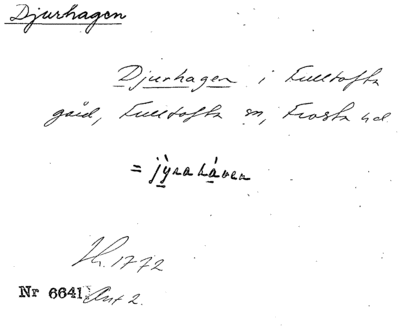 Djurhagen
Djurhagen i Fulltofta
gård, Fulltofta sn, Frosta hd
= jỳrahá̱ven
Nr 6641 Ant 2.